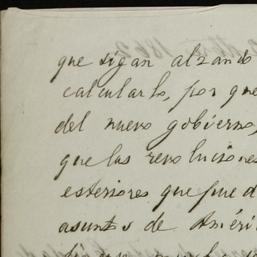 que sigan alzando
calcularlo, por que
del nuevo gobierno,
que las revoluciones
esteriores que pued
asuntos de Améri